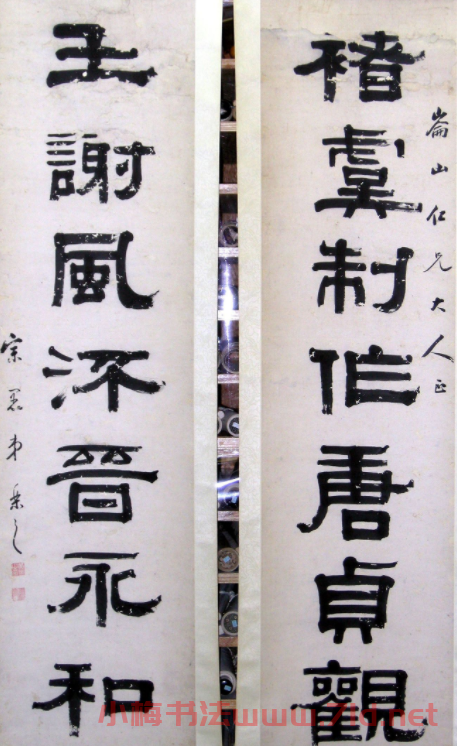 崙山仁兄大人正
褚虞制作唐貞觀
王謝風流晉永和
宗愚弟
小梅书法www.7ld.net